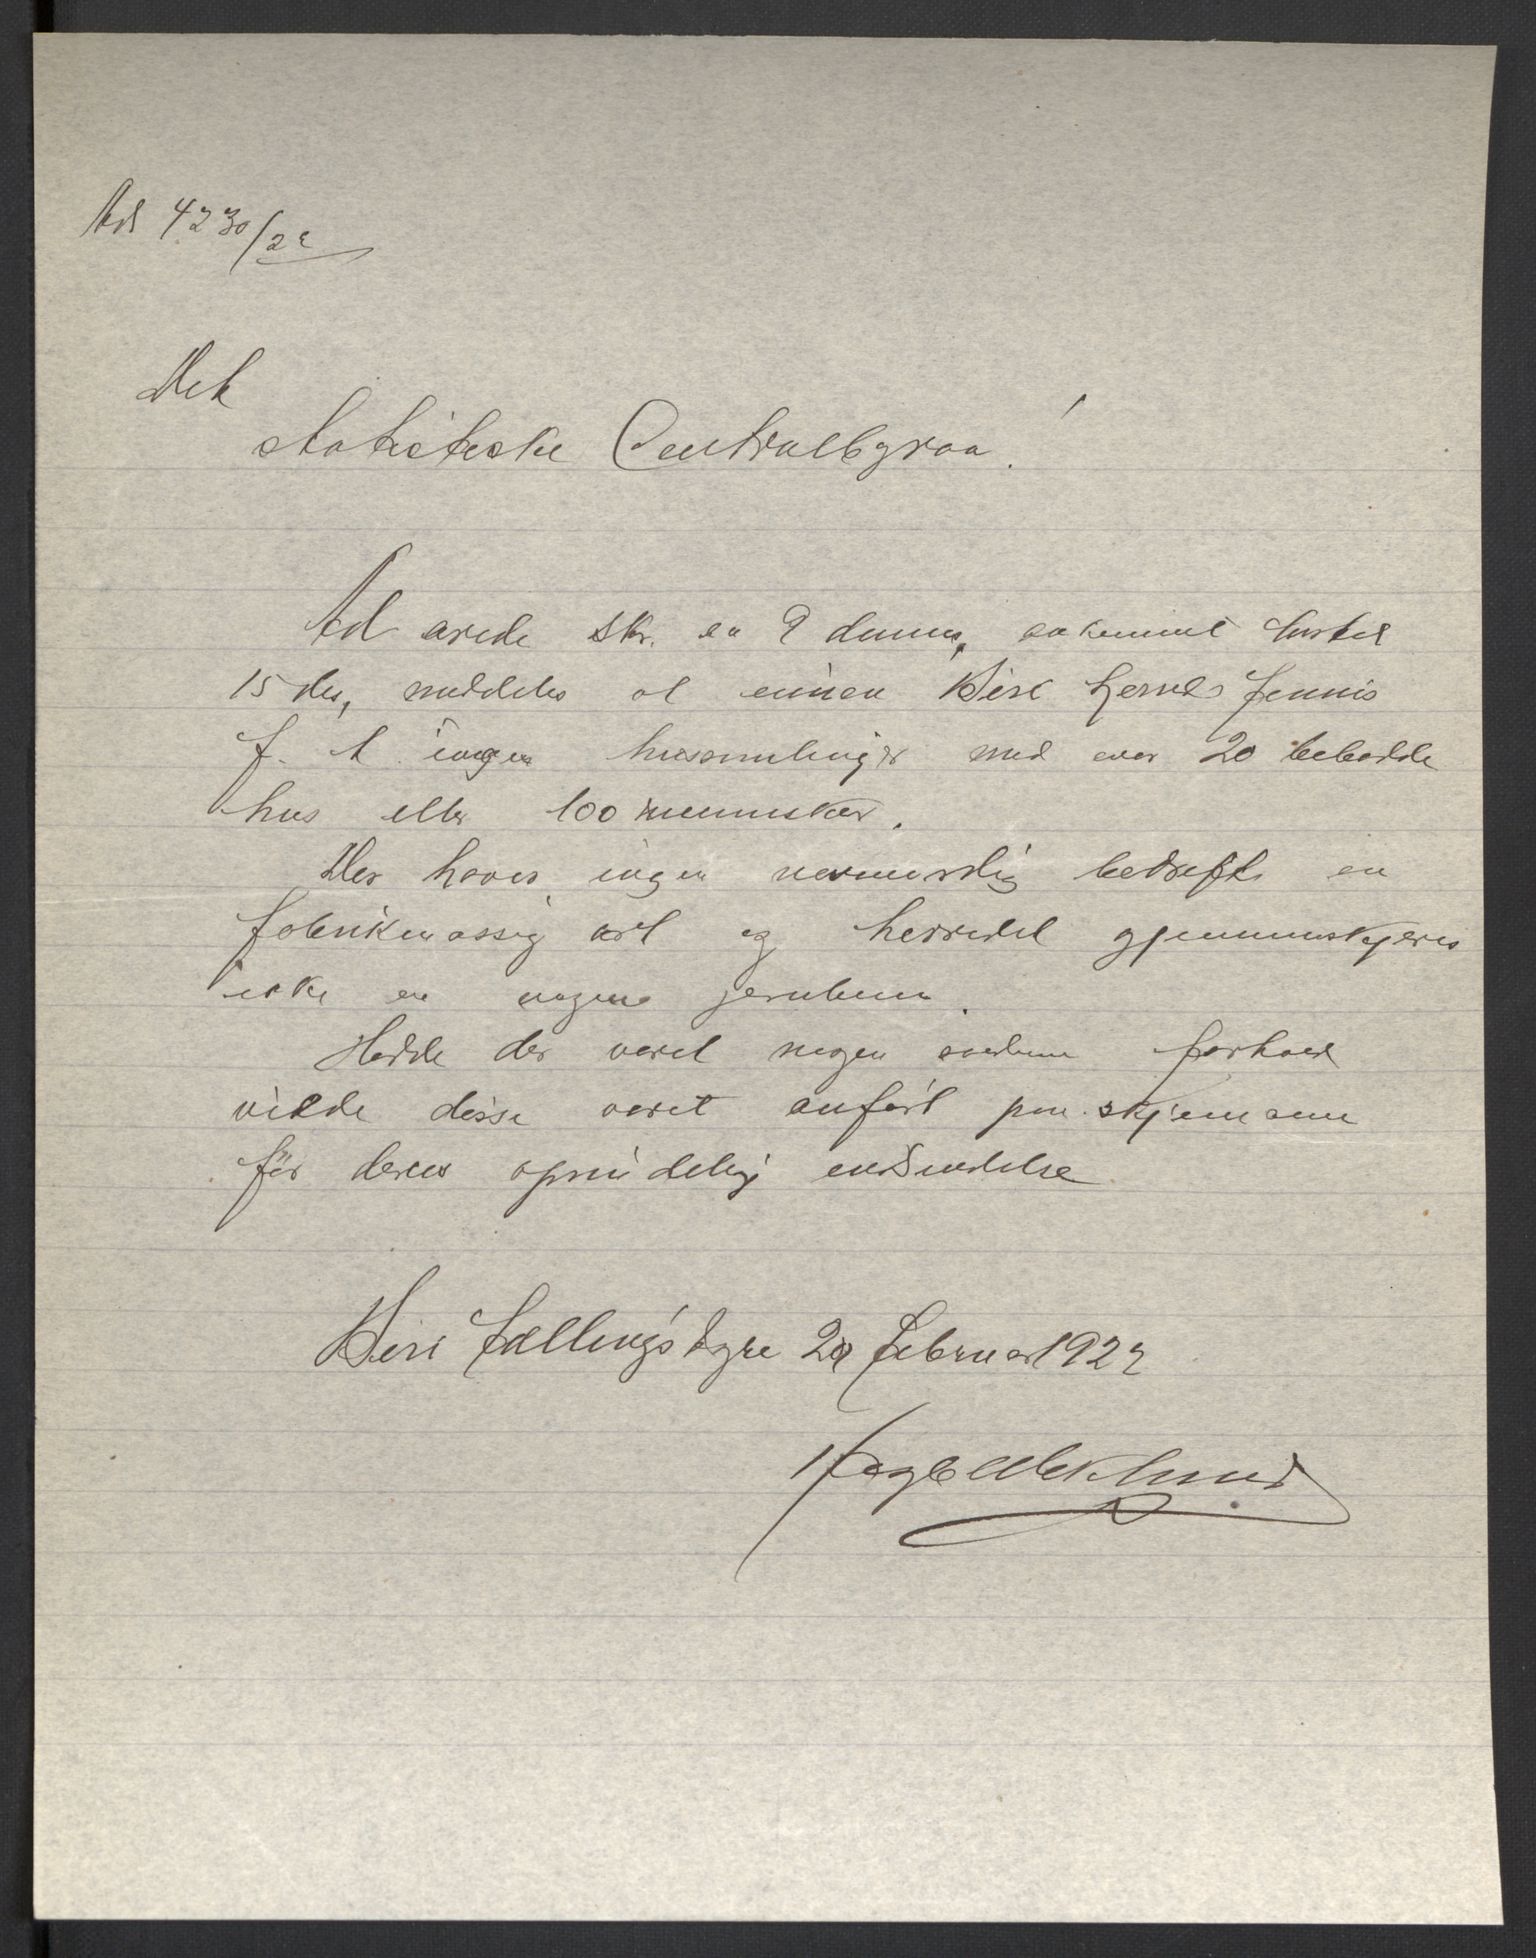 Ad 4230/22
Det
statistiske Centralbyraa!
Ad ærede skr. av 9 dennes, ankommet hertil
15 ds, meddeles at innen Biri herred finnes
f. t. ingen hussamlinger med over 20 bebodde
hus eller 100 mennesker.
Der haves ingen nevneverdig bedrift av
fabrikmæssig art og herredet gjennemskjæres
ikke av nogen jernbane.
Hadde der været nogen saadanne forhold
vilde disse været anført paa skjemaene
før deres oprindelig indsendelse
Biri 20 Februar 1922